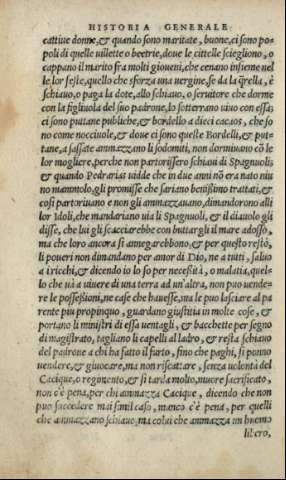 HISTORIA GENERALE
cattiue donne, & quando sono maritate, buone, ci sono po-
poli di quelle uillette o beetrie, doue le cittelle sciegliono, o
cappano il marito fra molti gioueni, che cenano insieme nel
le lor feste, quello che sforza una uergine, se da la q̃rella, è
schiauo, o paga la dote, allo schiauo, o seruitore che dorme
con la figliuola del suo padrone, lo sotterrano uiuo con essa;
ci sono puttane publiche, & bordello a dieci cacaos, che so
no come nocciuole, & doue ci sono queste Bordelli, & put-
tane, a sassate ammazzano li sodomiti, non dormiuano cō le
lor mogliere, perche non partorissero schiaui di Spagnuoli;
& quando Pedrarias uidde che in due anni nō era nato niu
no mammolo, gli promisse che sariano benissimo trattati, &
cosi partoriuano e non gli ammazzauano, dimandorono alli
lor Idoli, che mandariano uia li Spagnuoli, & il diauolo gli
disse, che lui gli scacciarebbe con buttargli il mare adosso,
ma che loro ancora si annegarebbono, & per questo restò,
li poueri non dimandano per amor di Dio, ne a tutti, saluo
a i ricchi, & dicendo io lo fo per necessità, o malatia, quel-
lo che uà a uiuere di una terra ad un'altra, non puo uende-
re le possessioni, ne case che hauesse, ma le puo lasciare al pa
rente piu propinquo, guardano giustitia in molte cose, &
portano li ministri di essa uentagli, & bacchette per segno
di magistrato, tagliano li capelli al ladro, & resta schiauo
del padrone a chi ha fatto il furto, fino che paghi, si ponno
uendere, & giuocare, ma non riscattare, senza uolontà del
Cacique, o regimento, & si tarda molto, muore sacrificato,
non c'è pena, per chi ammazza Cacique, dicendo che non
puo succedere mai simil caso, manco c'è pena, per quelli
che ammazzano schiauo, ma colui che ammazza un huomo
libero,